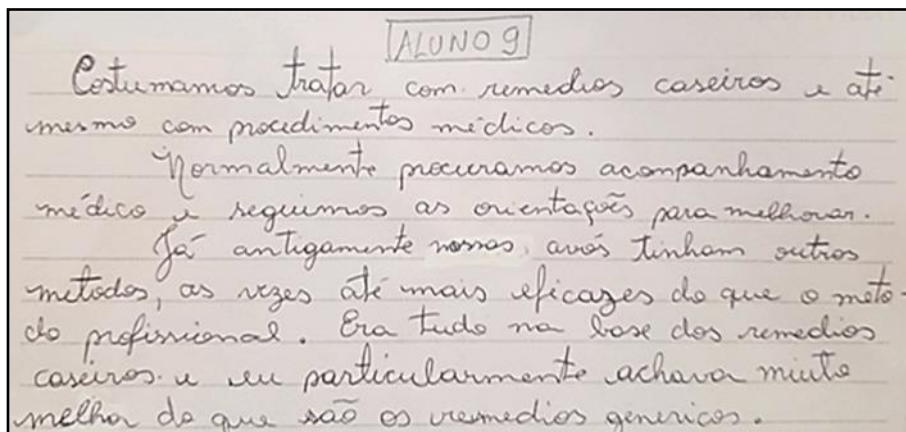 ALUNO 9
Costumamos tratar com remedios caseiros e até
mesmo com procedimentos médicos.
Normalmente procuramos acompanhamento
médico e seguimos as orientações para melhorar.
Já antigamente nossos avós tinham outros
metodos, as vezes até mais eficazes do que o meto-
do profissional. Era tudo na base dos remedios
caseiros e eu particularmente achava muito
melhor do que são os remedios genericos.